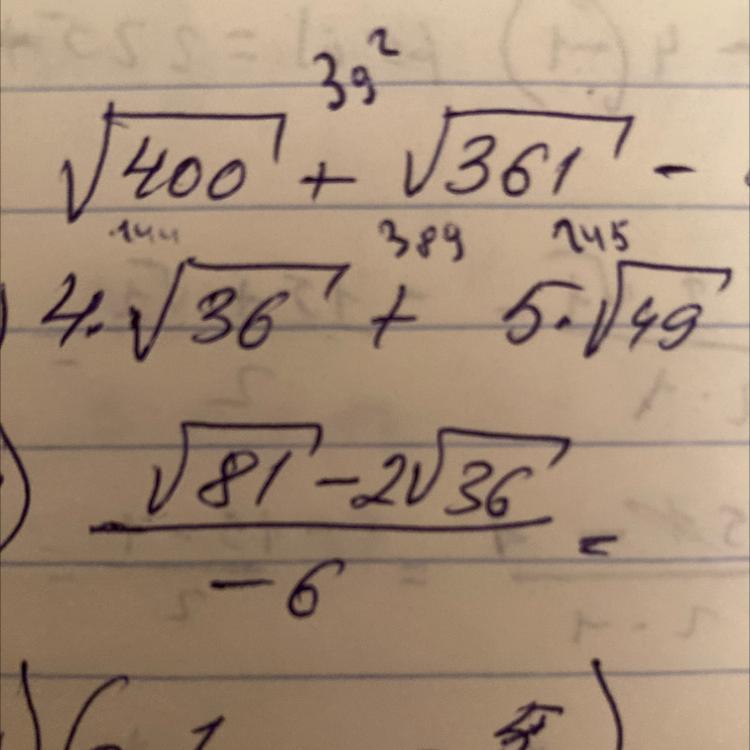 39²
√400 + √361 -
144 389 245
4·√36 + 5·√49
√81 - 2√36
=
- 6